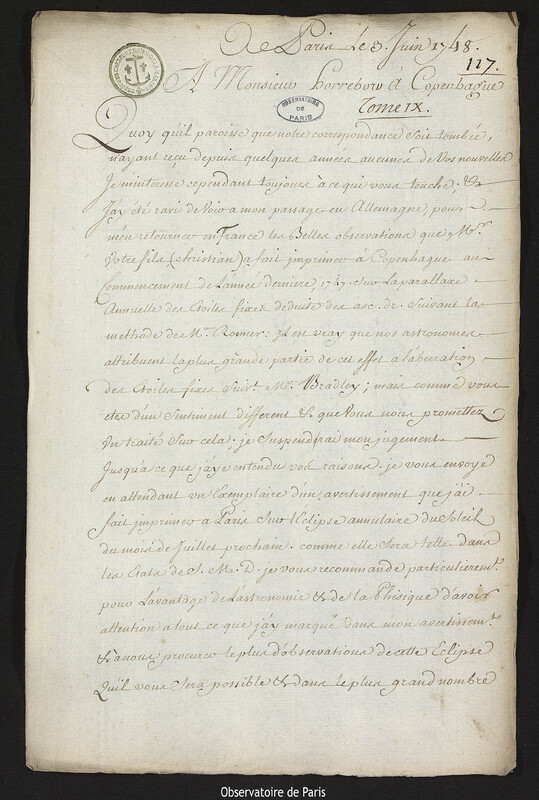 De Paris le 3. Juin 1748.
117.
A Monsieur horrebow à Copenhague
OBSERVATOIRE DE PARIS
Tome IX.
Quoy qu'il paroisse que notre correspondance soit tombée,
n'ayant reçu depuis quelques années aucunes de Vos nouvelles
Je m'interesse cependant toujours à ce qui vous touche; &
J'ay été ravi de Voir a mon passage en Allemagne, pour
m'en retourner en France les Belles observations que Mr.
Votre fils (christian) a fait imprimer à Copenhague au
Commencement de l'année derniere, 1747. sur la parallaxe
Annuelle des Etoiles fixes deduite des asc. dr. suivant la
methode de Mr. Romer: Il est vray que nos astronomes
attribuent la plus grande partie de cet effet a l'aberration
des Etoiles fixes suivt. Mr. Bradley; mais comme vous
etes d'un sentiment different & que Vous nous promettez
Un traité sur cela. je suspendrai mon jugement
Jusqu'a ce que j'aye entendu vos raisons. je vous envoye
en attendant un Exemplaire d'un avertissement que j'ai
fait imprimer a Paris sur l'Eclipse annulaire du Soleil
du mois de Juillet prochain. comme elle sera telle dans
les Etats de S. M. D. je vous recommande particulieremt.
pour l'avantage de l'astronomie & de la Phisique d'avoir
attention a tout ce que j'ay marqué dans mon avertissemt.
& a nous procurer le plus d'observations de cette Eclipse
Qu'il vous sera possible & dans le plus grand nombre
Observatoire de Paris